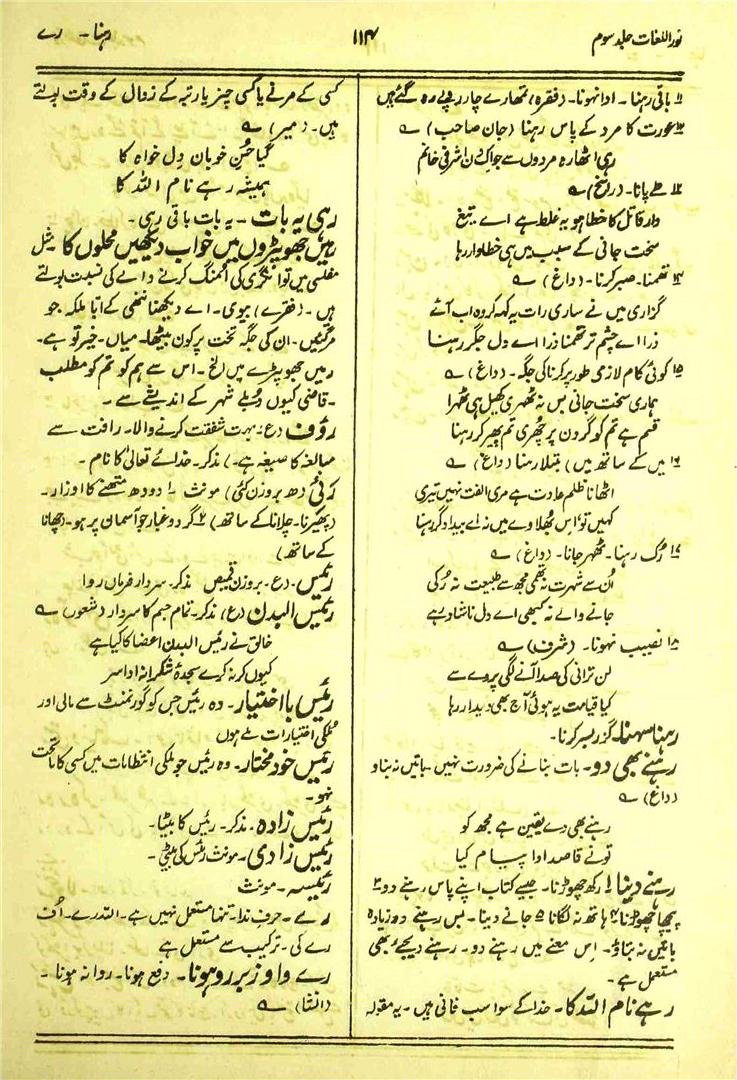 نوراللغات جلد سوم
۱۱۴
رہنا۔ رے
۱۱ باقی رہنا۔ ادا نہونا۔ (فقرہ) تمھارے چار روپے رہ گئے ہیں
۱۲ عورت کا مرد کے پاس رہنا (جان صاحب) ؎
رہی اٹھارہ مردوں سے جو اک دن اشرفی خانم
طے پانا۔ (راسخ) ؎
وار قاتل کا خطا ہو یہ غلط ہے اے تیغ
سخت جانی کے سبب میں ہی خطاوار رہا
۱۴ تھمنا۔ صبر کرنا۔ (داغ) ؎
گزاری میں نے ساری رات یہ کہہ کر وہ اب آئے
ذرا اے چشم تر تھمنا ذرا اے دل جگر رہنا
۱۵ کوئی کام لازمی طور پر کرنا کی جگہ۔ (داغ) ؎
ہماری سخت جانی بس نہ ٹھہری کھیل ہی ٹھہرا
قسم ہے تم کو گردن پر چھری تم پھیر کر رہنا
۱۶ میں کے ساتھ میں) مبتلا رہنا (داغ) ؎
اٹھانا ظلم عادت ہے مری الفت نہیں تیری
کہیں تو اس بھلاوے میں نہ اے بیداد گر رہنا
۱۷ رک رہنا۔ ٹھہر جانا۔ (داغ) ؎
ان سے شہرت نہ تھمی مجھ سے طبیعت نہ رکی
جانے والے نہ کبھی اے دل ناشاد رہے
۱۸ نصیب نہونا۔ (شرف) ؎
لن ترانی کی صدا آنے لگی پردے سے
کیا قیامت یہ ہوئی آج بھی دیدار رہا
رہنا سہنا۔ گزر بسر کرنا۔
رہنے بھی دو۔ بات بنانے کی ضرورت نہیں۔ باتیں نہ بناؤ
(داغ) ؎
رہنے بھی دے یقین ہے مجھ کو
تونے قاصد ادا پیام کیا
رہنے دینا۔ ۱ رکھ چھوڑنا۔ جیسے کتاب اپنے پاس رہنے دو ۲
پیچھا چھوڑنا ۳ ہاتھ نہ لگانا ۵ جانے دینا۔ بس رہنے دو زیادہ
باتیں نہ بناؤ۔ اس معنے میں رہنے دو۔ رہنے دیجیے بھی
مستعمل ہے۔
رہے نام اللہ کا۔ خدا کے سوا سب فانی ہیں۔ یہ مقولہ
کسی کے مرنے یا کسی چیز یا رتبہ کے زوال کے وقت بولتے
ہیں۔ (میر) ؎
گیا حسن خوبان دل خواہ کا
ہمیشہ رہے نام اللہ کا
رہی یہ بات۔ یہ بات باقی رہی۔
رہیں جھونپڑوں میں خواب دیکھیں محلوں کا مثل
مفلسی میں توانگری کی امنگ کرنے والے کی نسبت بولتے
ہیں۔ (فقرے) بیوی۔ اے دیکھنا ننھی کے ابا ملکہ جو
مرگئیں۔ ان کی جگہ تخت پر کون بیٹھا۔ میاں۔ خیر تو ہے۔
رہیں جھونپڑے میں الخ۔ اس سے ہم کو تم کو مطلب
۔ قاضی کیوں دبلے شہر کے اندیشے سے۔
رؤف (ع۔ بہت شفقت کرنے والا۔ رافت سے
مبالغہ کا صیغہ ہے۔) مذکر۔ خدائے تعالیٰ کا نام۔
رئی (ھ بروزن گئی) مونث ۱ دودھ متھنے کا اوزار۔
(پھیرنا۔ چلانا کے ساتھ) ۲ گرد و غبار جو آسمان پر ہو۔ (چھانا
کے ساتھ)
رئیس۔ (ع۔ بروزن قمیص) مذکر۔ سردار فرماں روا
رئیس البدن (ع) مذکر۔ تمام جسم کا سردار (شعور) ؎
خالق نے رئیس البدن اعضا کا کیا ہے
کیوں کر نہ کرے سجدۂ شکرانہ ادا سر
رئیس بااختیار۔ وہ رئیس جس کو گورنمنٹ سے مالی اور
ملکی اختیارات ملے ہوں
رئیس خودمختار۔ وہ رئیس جو ملکی انتظامات میں کسی کا ماتحت
نہو۔
رئیس زادہ۔ مذکر۔ رئیس کا بیٹا۔
رئیس زادی۔ مونث رئیس کی بیٹی۔
رئیسہ۔ مونث
رے۔ حرف ندا۔ تنہا مستعمل نہیں ہے۔ اللہ رے۔ اف
رے کی۔ ترکیب سے مستعمل ہے
رے واؤ زبر رو ہونا۔ دفع ہونا۔ روانہ ہونا۔
(انشا) ؎